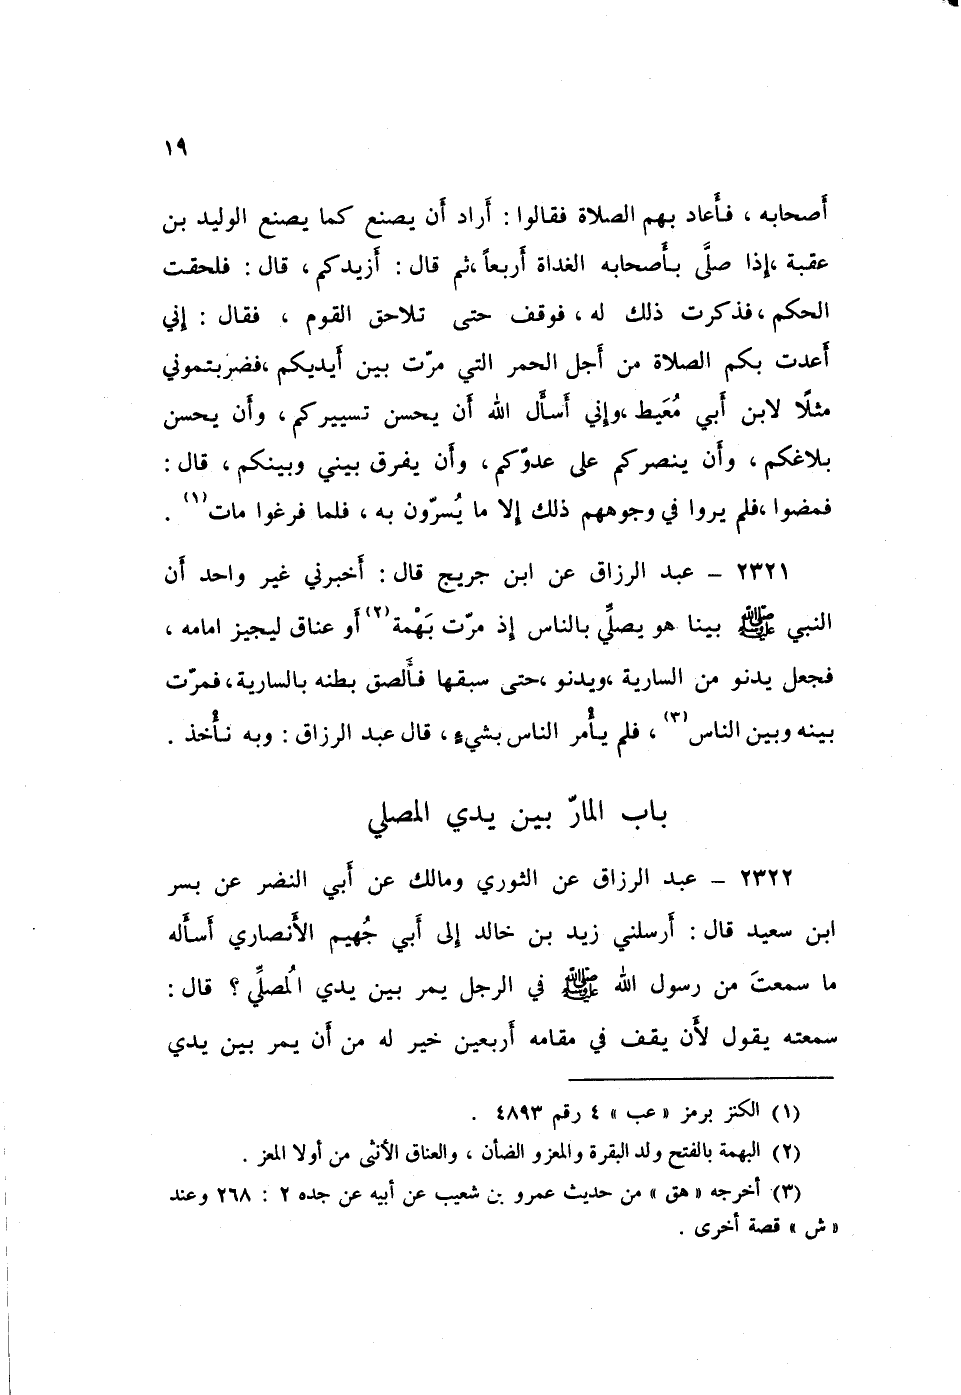 ١٩
أصحابه ، فأعاد بهم الصلاة فقالوا : أراد أن يصنع كما يصنع الوليد بن
عقبة ،إذا صلَّى بأصحابه الغداة أربعاً ،ثم قال : أزيدكم ، قال : فلحقت
الحكم ،فذكرت ذلك له ، فوقف حتى تلاحق القوم ، فقال : إني
أعدت بكم الصلاة من أجل الحمر التي مرّت بين أيديكم ،فضربتموني
مثلًا لابن أبي مُعَيط ،وإني أسأل الله أن يحسن تسييركم ، وأن يحسن
بلاغكم ، وأن ينصركم على عدوّكم ، وأن يفرق بيني وبينكم ، قال :
فمضوا ،فلم يروا في وجوههم ذلك إلا ما يُسرّون به ، فلما فرغوا مات (١) .
٢٣٢١ – عبد الرزاق عن ابن جريج قال : أخبرني غير واحد أن
النبي ﷺ بينا هو يصلِّي بالناس إذ مرّت بَهْمة (٢) أو عناق ليجيز امامه ،
فجعل يدنو من السارية ،ويدنو ،حتى سبقها فألصق بطنه بالسارية ، فمرّت
بينه وبين الناس (٣) ، فلم يأمر الناس بشيءٍ ، قال عبد الرزاق : وبه نأخذ .
باب المارّ بين يدي المصلي
٢٣٢٢ – عبد الرزاق عن الثوري ومالك عن أبي النضر عن بسر
ابن سعيد قال : أرسلني زيد بن خالد إلى أبي جُهيم الأنصاري أسأله
ما سمعتَ من رسول الله ﷺ في الرجل يمر بين يدي المُصلِّي ؟ قال :
سمعته يقول لأن يقف في مقامه أربعين خير له من أن يمر بين يدي
(١) الكنز برمز « عب » ٤ رقم ٤٨٩٣ .
(٢) البهمة بالفتح ولد البقرة والمعزو الضأن ، والعناق الأنثى من أولا المعز .
(٣) أخرجه « هق » من حديث عمرو بن شعيب عن أبيه عن جده ٢ : ٢٦٨ وعند
« ش » قصة أخرى .